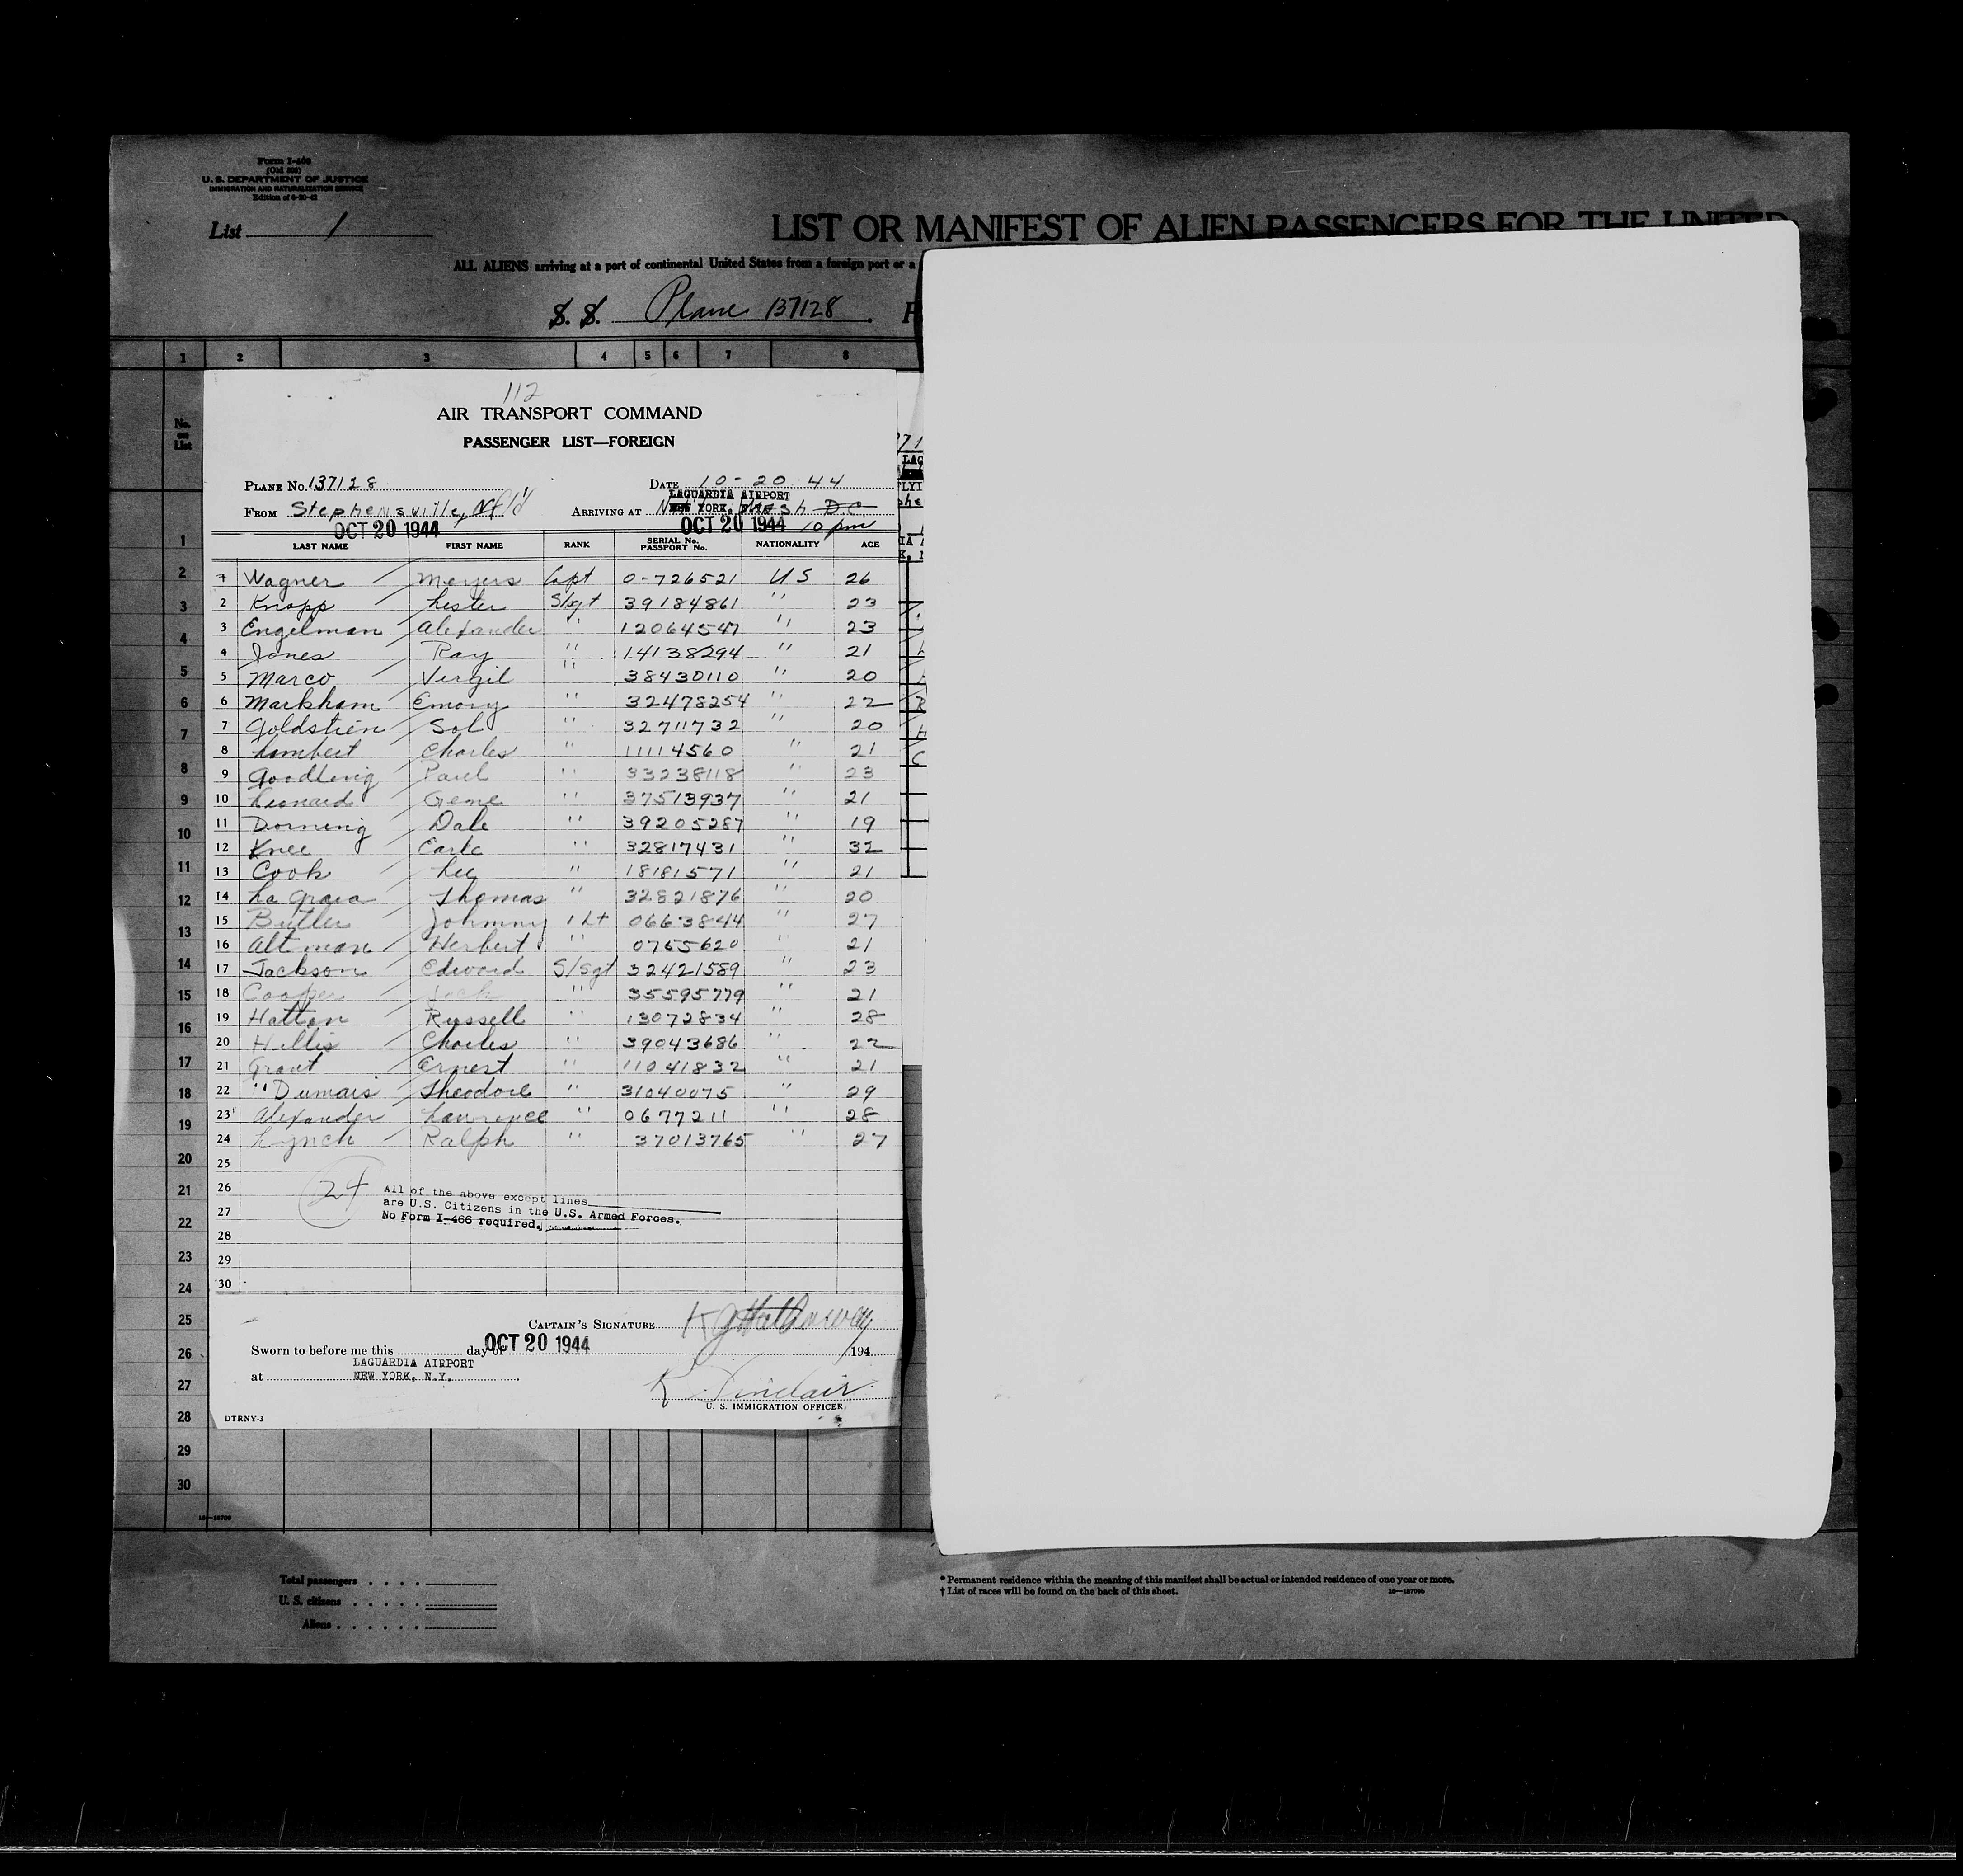 Form I-466
(Old 500)
U. S. DEPARTMENT OF JUSTICE
IMMIGRATION AND NATURALIZATION SERVICE
List 1
LIST OR MANIFEST OF ALIEN PASSENGERS FOR THE UNITED
ALL ALIENS arriving at a port of continental United States from a foreign port or a
S. S. Plane 137128
1 2 3 4 5 6 7 8
No. on List
112
AIR TRANSPORT COMMAND
PASSENGER LIST—FOREIGN
PLANE No. 137128 DATE 10-20 44
LAGUARDIA AIRPORT
FROM Stephensville, Nf'l'd ARRIVING AT NEW YORK, D C
OCT 20 1944 OCT 20 1944 10 pm
LAST NAME FIRST NAME RANK SERIAL No. PASSPORT No. NATIONALITY AGE
1 Wagner Meyers Capt 0-726521 US 26
2 Knapp Lester S/sgt 39184861 " 23
3 Engelman Alexander " 12064547 " 23
4 Jones Ray " 14138294 " 21
5 Marco Vergil " 38430110 " 20
6 Markham Emory " 32478254 " 22
7 Goldstien Sol " 32711732 " 20
8 Lambert Charles " 11114560 " 21
9 Goodling Paul " 33238118 " 23
10 Leonard Gene " 37513937 " 21
11 Dorning Dale " 39205287 " 19
12 Knee Earle " 32817431 " 32
13 Cook Lee " 18181571 " 21
14 La Thomas " 32821876 " 20
15 Butler Johnny 1 Lt 0663844 " 27
16 Altman Herbert " 0765620 " 21
17 Jackson Edward S/Sgt 32421589 " 23
18 Cooper Jack " 35595779 " 21
19 Hatton Russell " 13072834 " 28
20 Hillis Charles " 39043686 " 22
21 Grant Ernest " 11041832 " 21
22 " Dumais Theodore " 31040075 " 29
23 Alexander Lawrence " 0677211 " 28
24 Lynch Ralph " 37013765 " 27
25
26
27
28
29
30
24
All of the above except lines
are U.S. Citizens in the U.S. Armed Forces.
No Form I-466 required.
CAPTAIN'S SIGNATURE K G Hathaway
Sworn to before me this day of OCT 20 1944 194
LAGUARDIA AIRPORT
at NEW YORK, N.Y.
K Sinclair
U. S. IMMIGRATION OFFICER
DTRNY-3
1
2
3
4
5
6
7
8
9
10
11
12
13
14
15
16
17
18
19
20
21
22
23
24
25
26
27
28
29
30
Total passengers
U. S. citizens
Aliens
* Permanent residence within the meaning of this manifest shall be actual or intended residence of one year or more.
† List of races will be found on the back of this sheet.